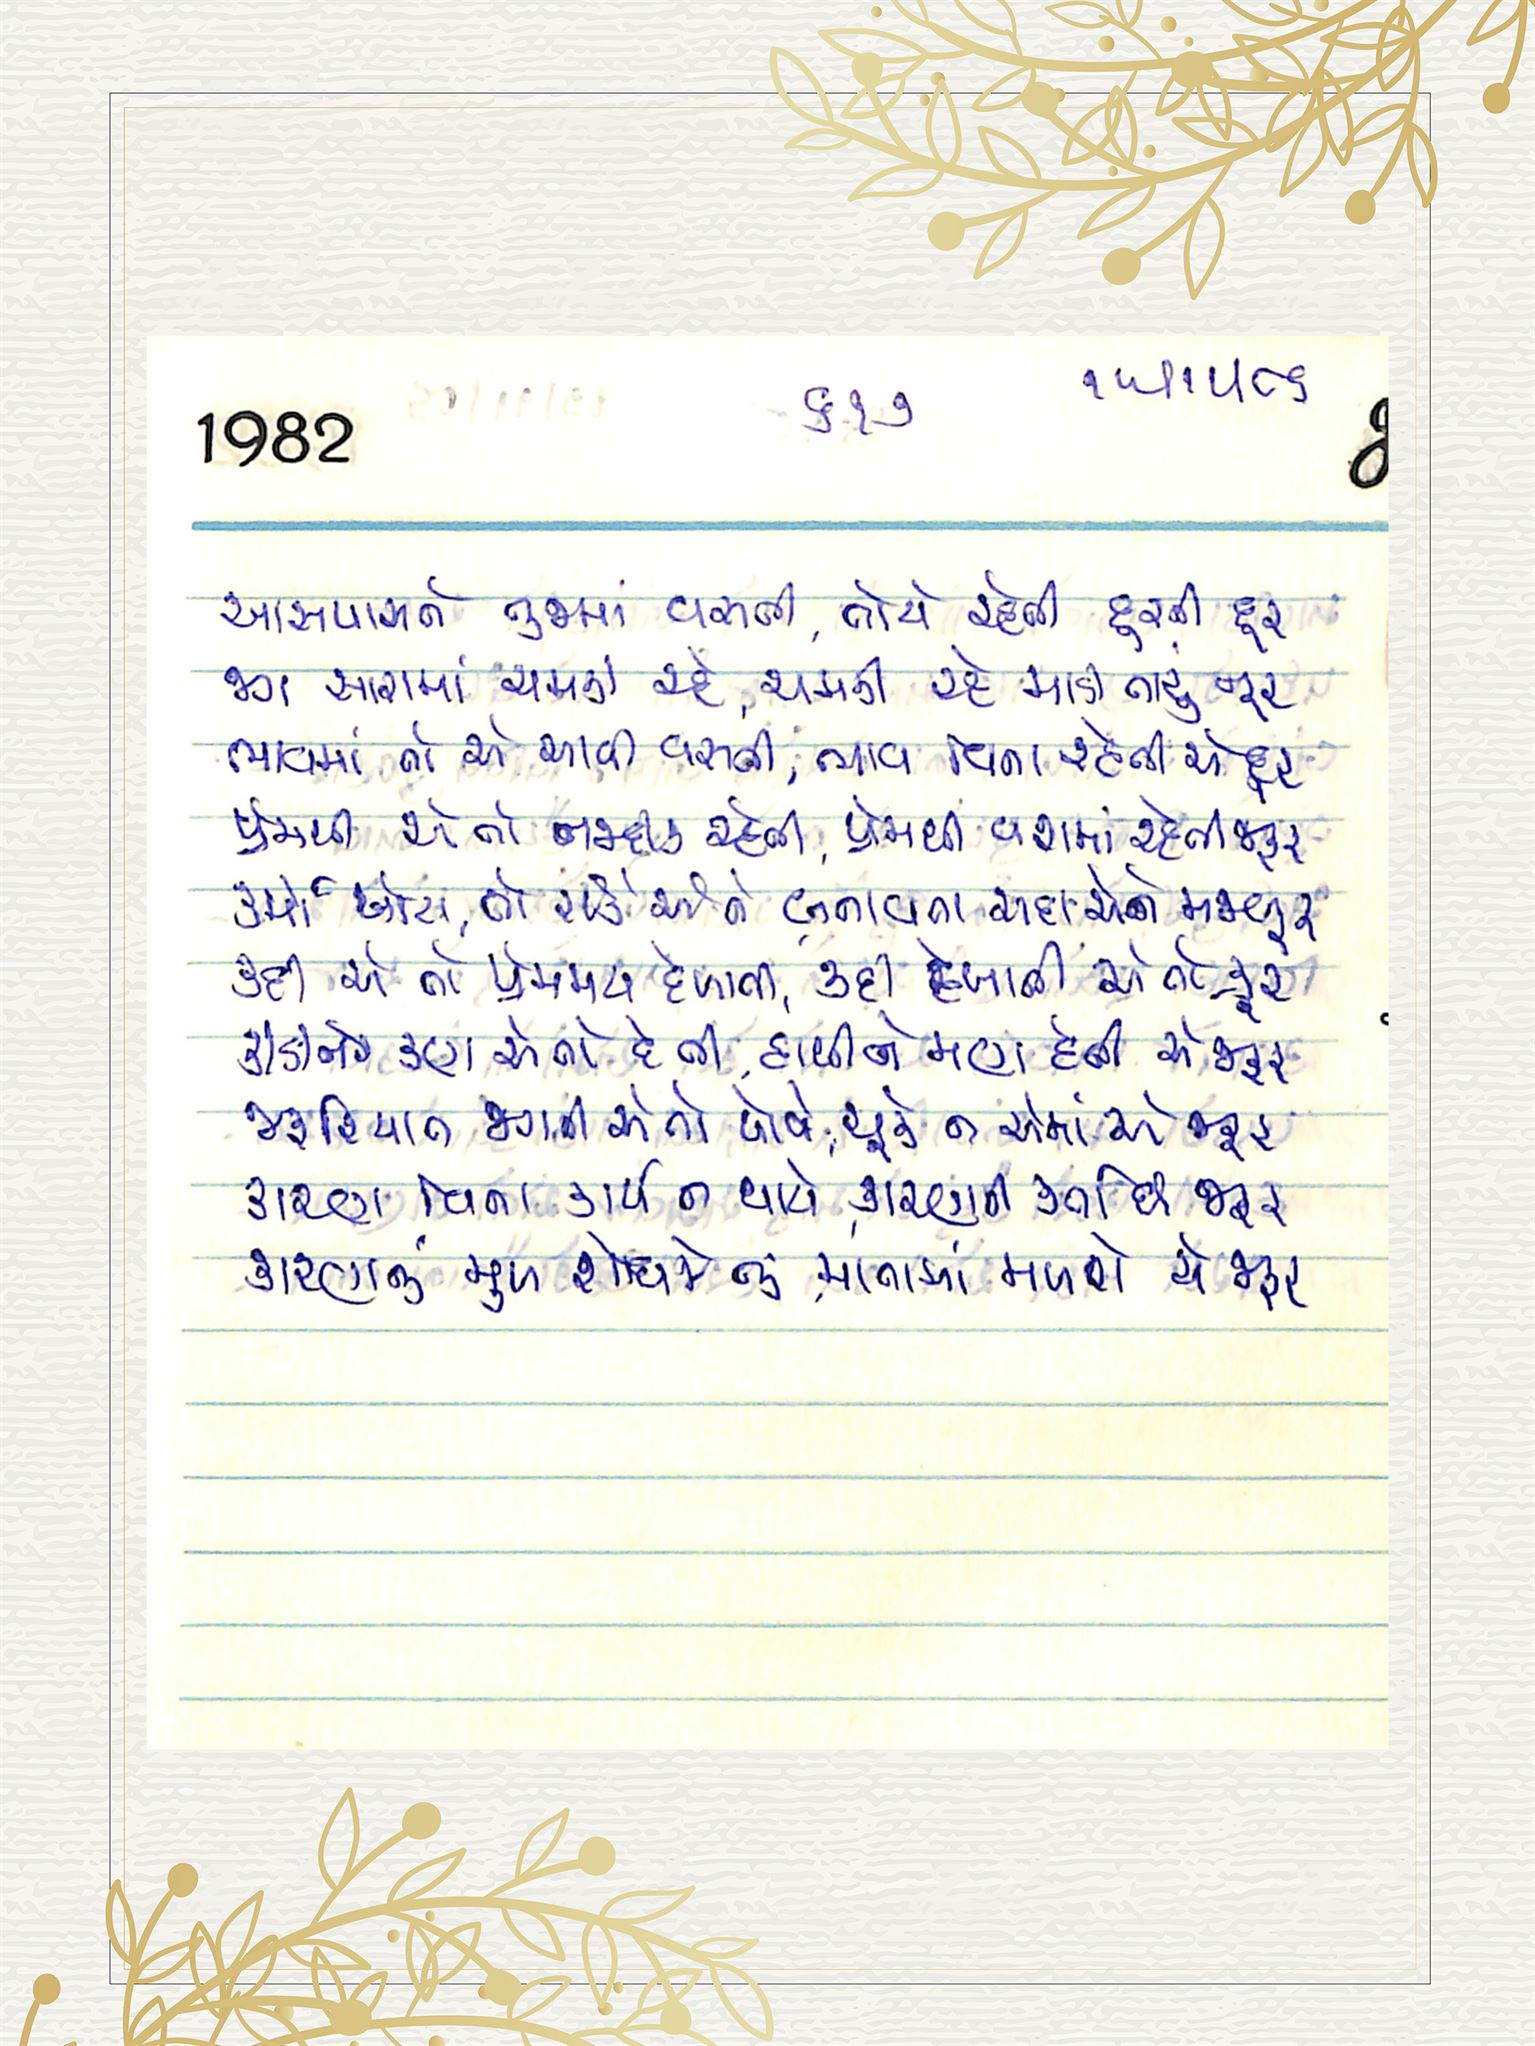 1982
૬૧૭
૧૫/૧૧/૮૬
આસપાસને તુજમાં વસતી, તોયે રહેતી દૂરની દૂર
જગ સારામાં ચમકી રહે, ચમકી રહે માડી તારું નૂર
ભાવમાં તો એ આવી વસતી, ભાવ વિના રહેતી એ દૂર
પ્રેમથી એ તો નજદીક રહેતી, પ્રેમથી વશમાં રહેતી જરૂર
કર્મો તો એને બનાવતા સદા એને મજબૂર
કદી એ તો પ્રેમમય દેખાતી, કદી દેખાતી એ તો ક્રૂર
કીડીને કણ એ તો દેતી, હાથીને મણ દેતી એ જરૂર
જરૂરિયાત જગની એ તો જોવે, ચૂકે ન એમાં એ જરૂર
કારણ વિના કાર્ય ન થાયે, કારણની કર્તા છે જરૂર
કારણનું મૂળ શોધજે તું, માતામાં મળશે એ જરૂર